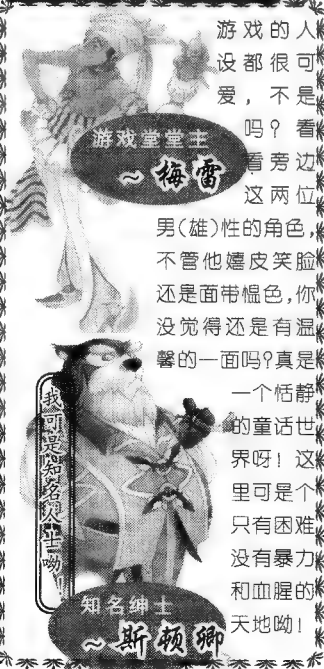 游戏的人
设都很可
爱，不是
吗？看
看旁边
这两位
男(雄)性的角色，
不管他嬉皮笑脸
还是面带愠色，你
没觉得还是有温
馨的一面吗？真是
一个恬静
的童话世
界呀！这
里可是个
只有困难
没有暴力
和血腥的
天地呦！
游戏堂堂主
～梅雷
我可是知名人士呦！
知名绅士
～斯顿卿